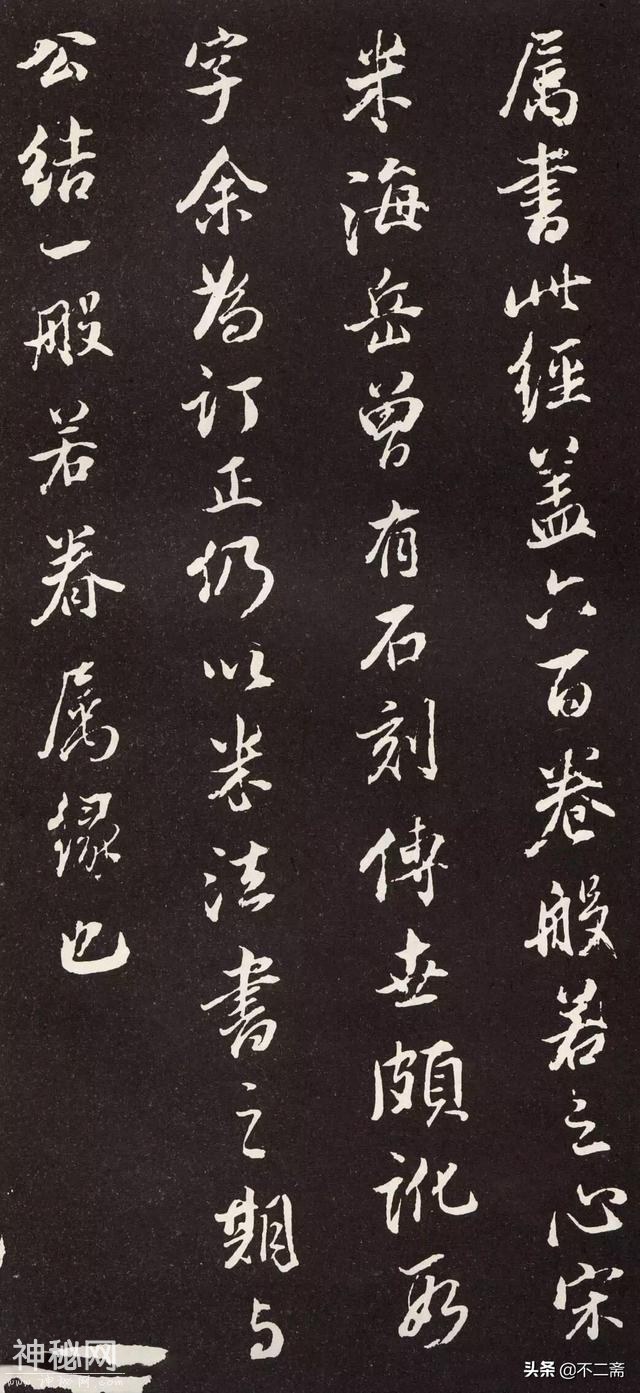 属書此經蓋六百卷般若之心宋
米海岳曾有石刻傳世頗訛數
字余為訂正仍以米法書之期与
公結一般若眷属縁也
神秘网
头条 @不二斋